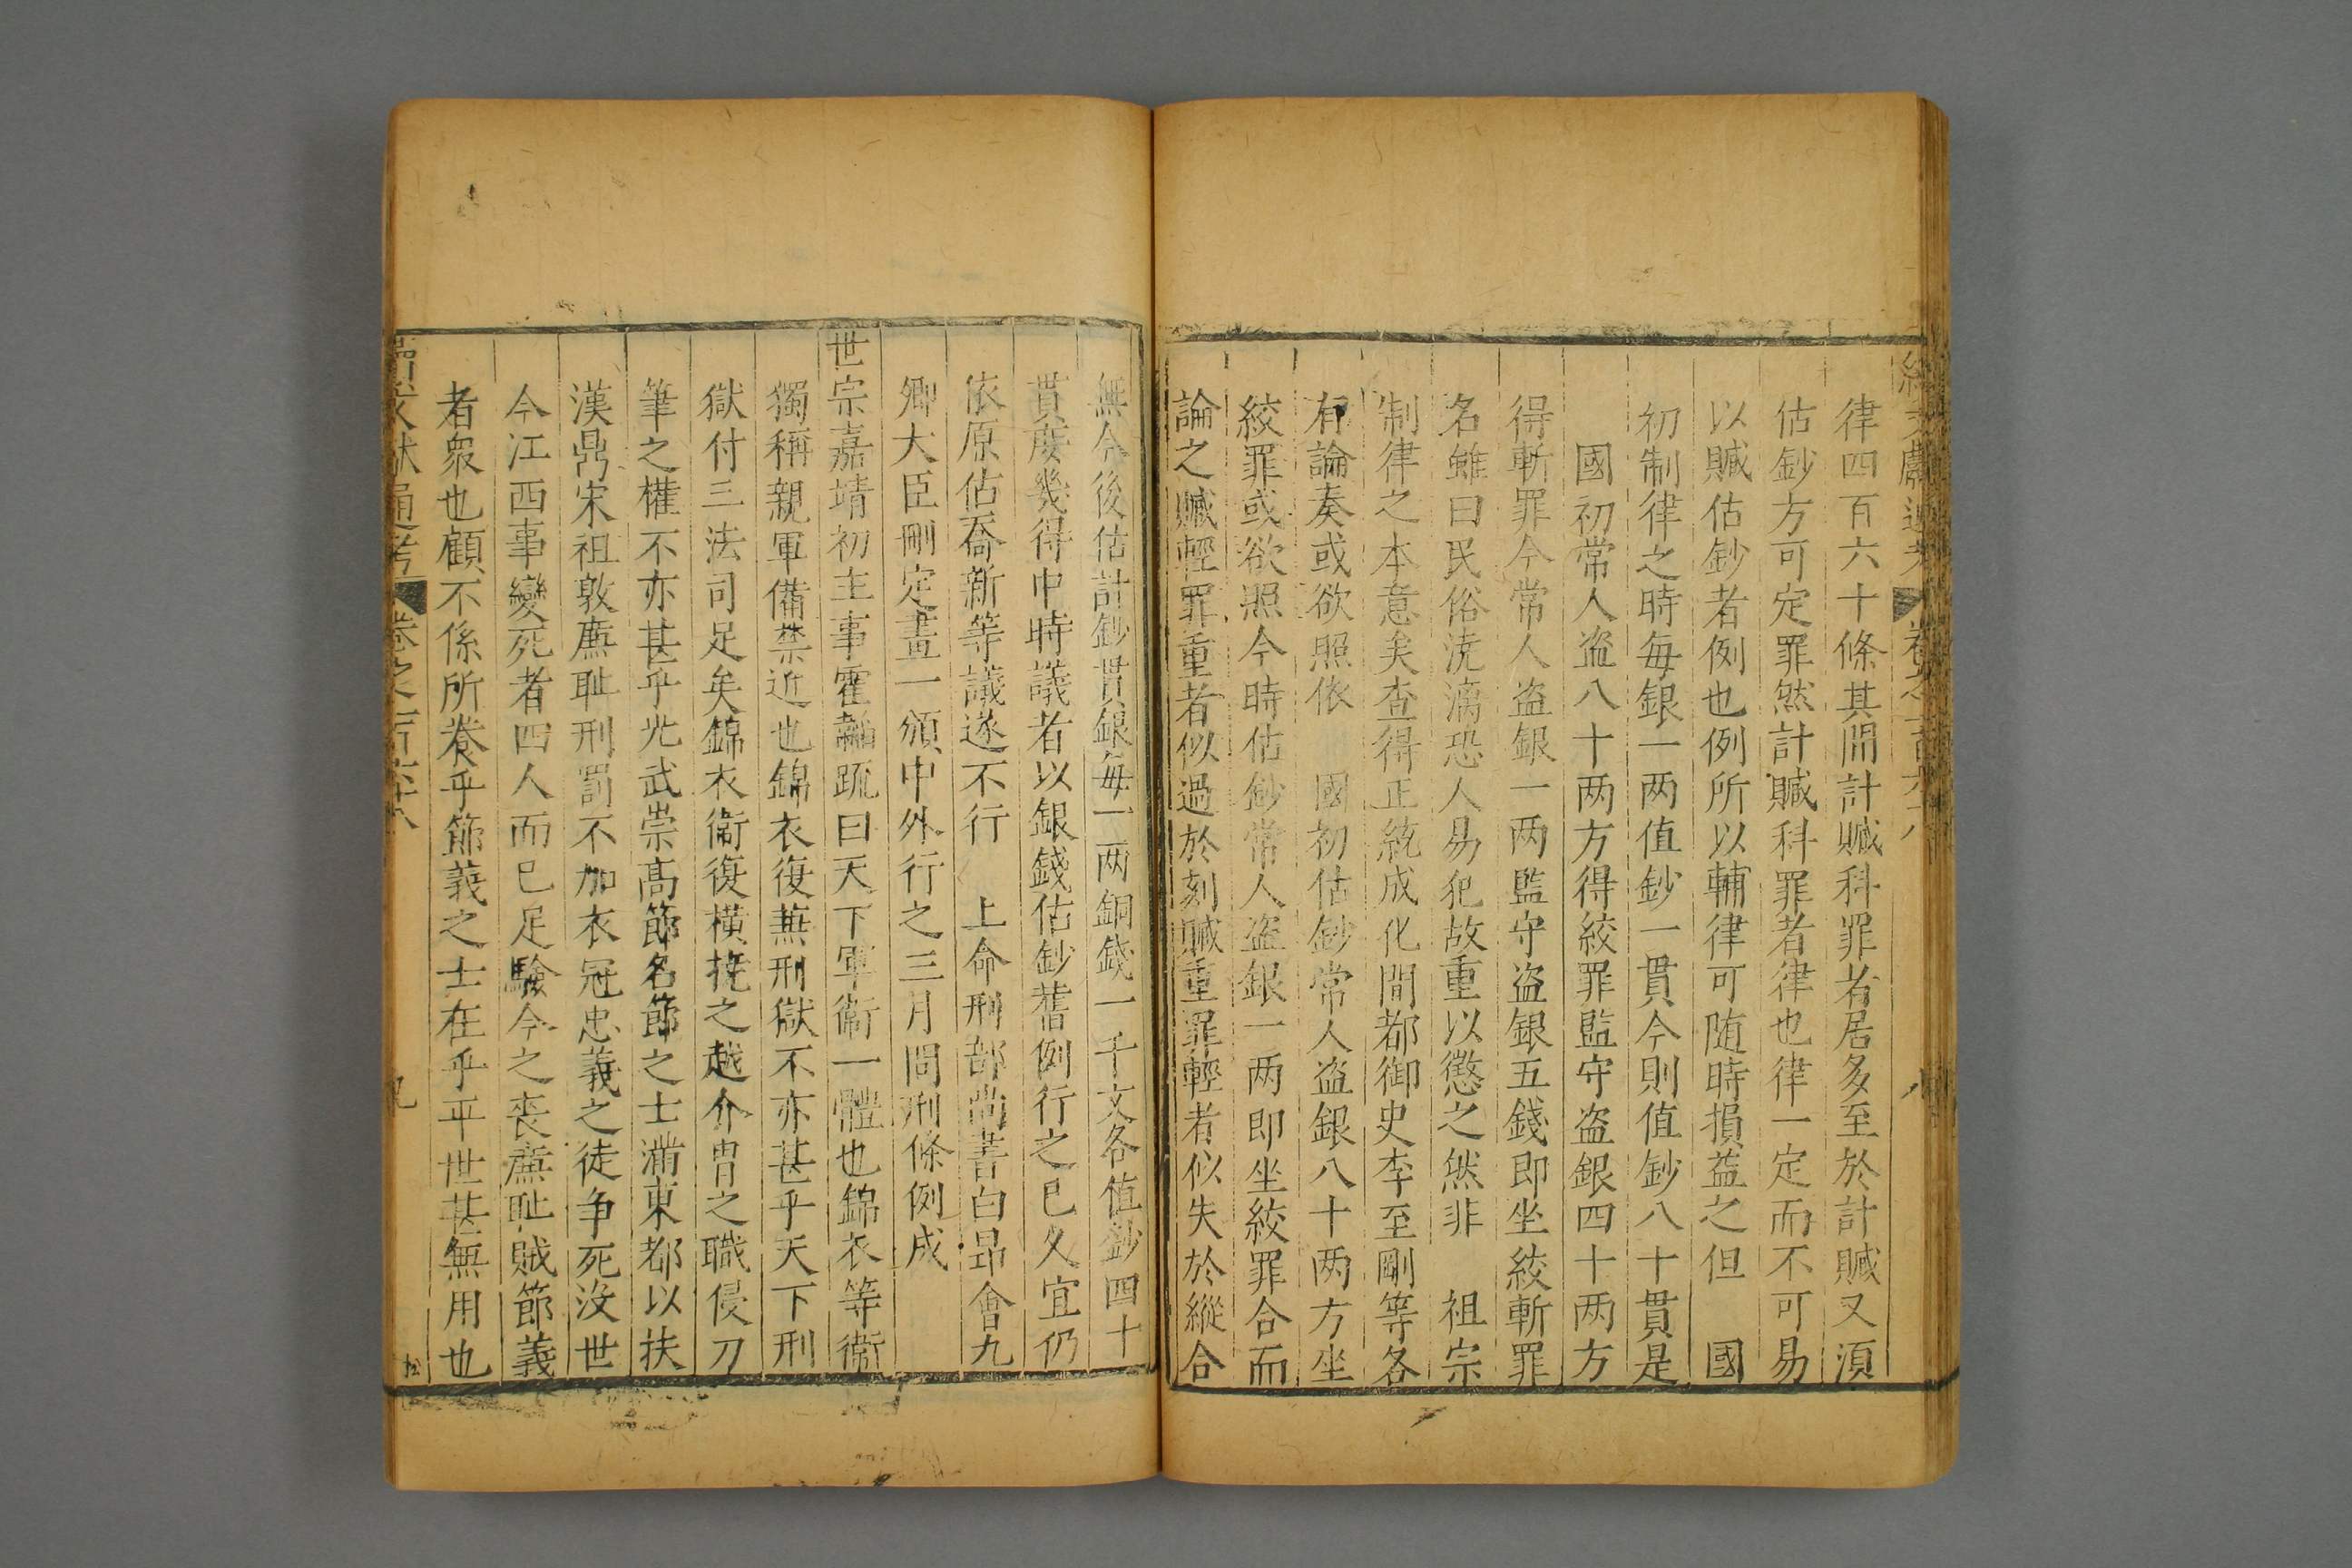 續文獻通考 卷之一百六十八
律四百六十條其間計贓科罪者居多至於計贓又湏
估鈔方可定罪然計贓科罪者律也律一定而不可易
以贓估鈔者例也例所以輔律可随時損益之但 國
初制律之時每銀一两值鈔一貫今則值鈔八十貫是
國初常人盗八十两方得絞罪監守盗銀四十两方
得斬罪今常人盗銀一两監守盗銀五錢即坐絞斬罪
名雖曰民俗澆漓恐人易犯故重以懲之然非 祖宗
制律之本意矣查得正統成化間都御史李至剛等各
有論奏或欲照依 國初估鈔常人盗銀八十两方坐
絞罪或欲照今時估鈔常人盗銀一两即坐絞罪合而
論之贓輕罪重者似過於刻贓重罪輕者似失於縱合
無今後估計鈔貫銀每一两銅錢一千文各值鈔四十
貫庶幾得中時議者以銀錢估鈔舊例行之已久宜仍
依原估喬新等議遂不行 上命刑部尚書白昻會九
卿大臣刪定畫一頒中外行之三月問刑條例成
世宗嘉靖初主事霍韜疏曰天下軍衞一體也錦衣等衞
獨稱親軍備禁近也錦衣復兼刑獄不亦甚乎天下刑
獄付三法司足矣錦衣衞復橫撓之越介胄之職侵刀
筆之權不亦甚乎光武崇高節名節之士滿東都以扶
漢鼎宋祖敦廉耻刑罰不加衣冠忠義之徒争死没世
今江西事變死者四人而已足驗今之喪廉耻賊節義
者衆也顧不係所養乎節義之士在乎平世甚無用也
續文獻通考 卷之一百六十八